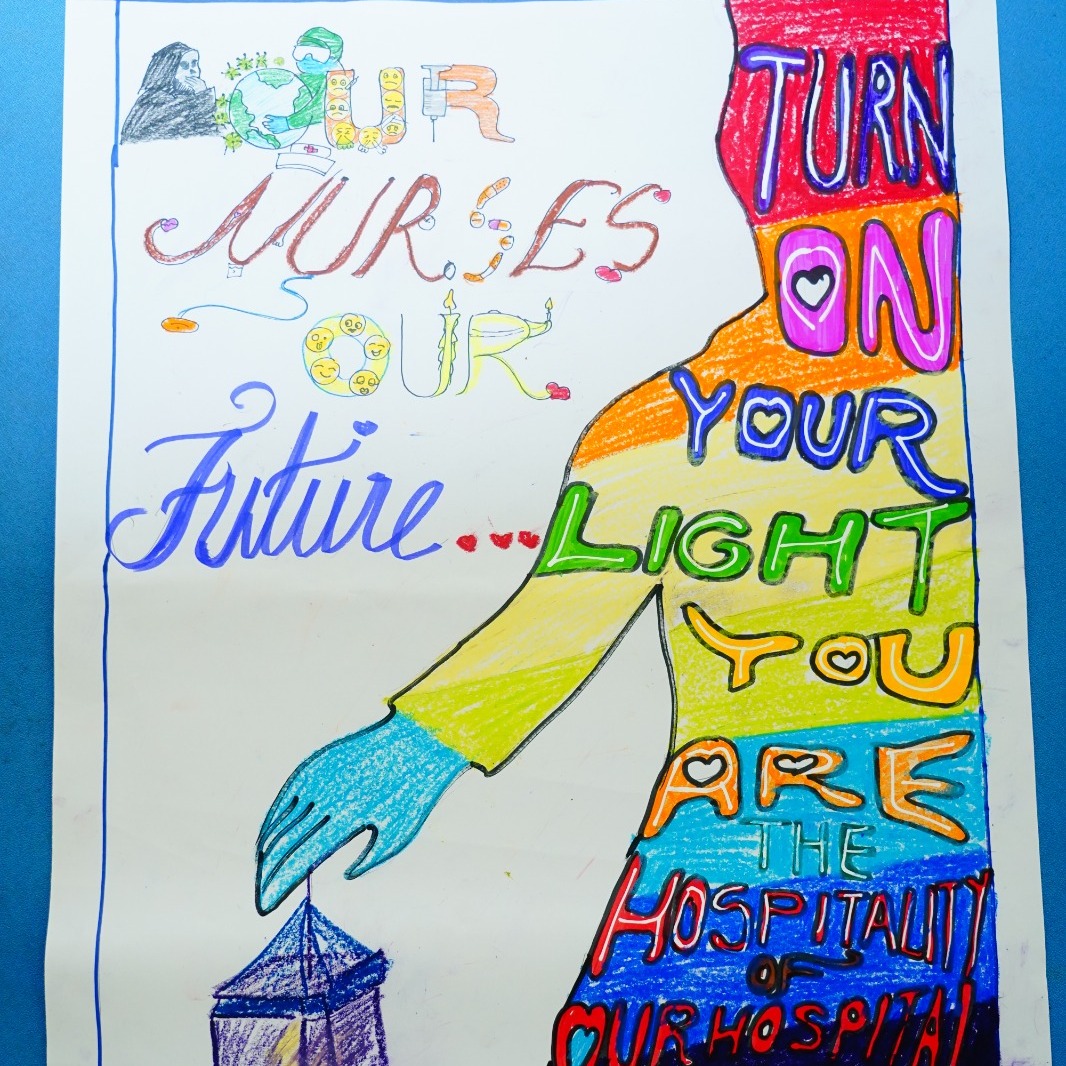 OUR
NURSES
OUR
Future...
TURN
ON
YOUR
LIGHT
YOU
ARE
THE
HOSPITALITY
OF
OUR HOSPITAL